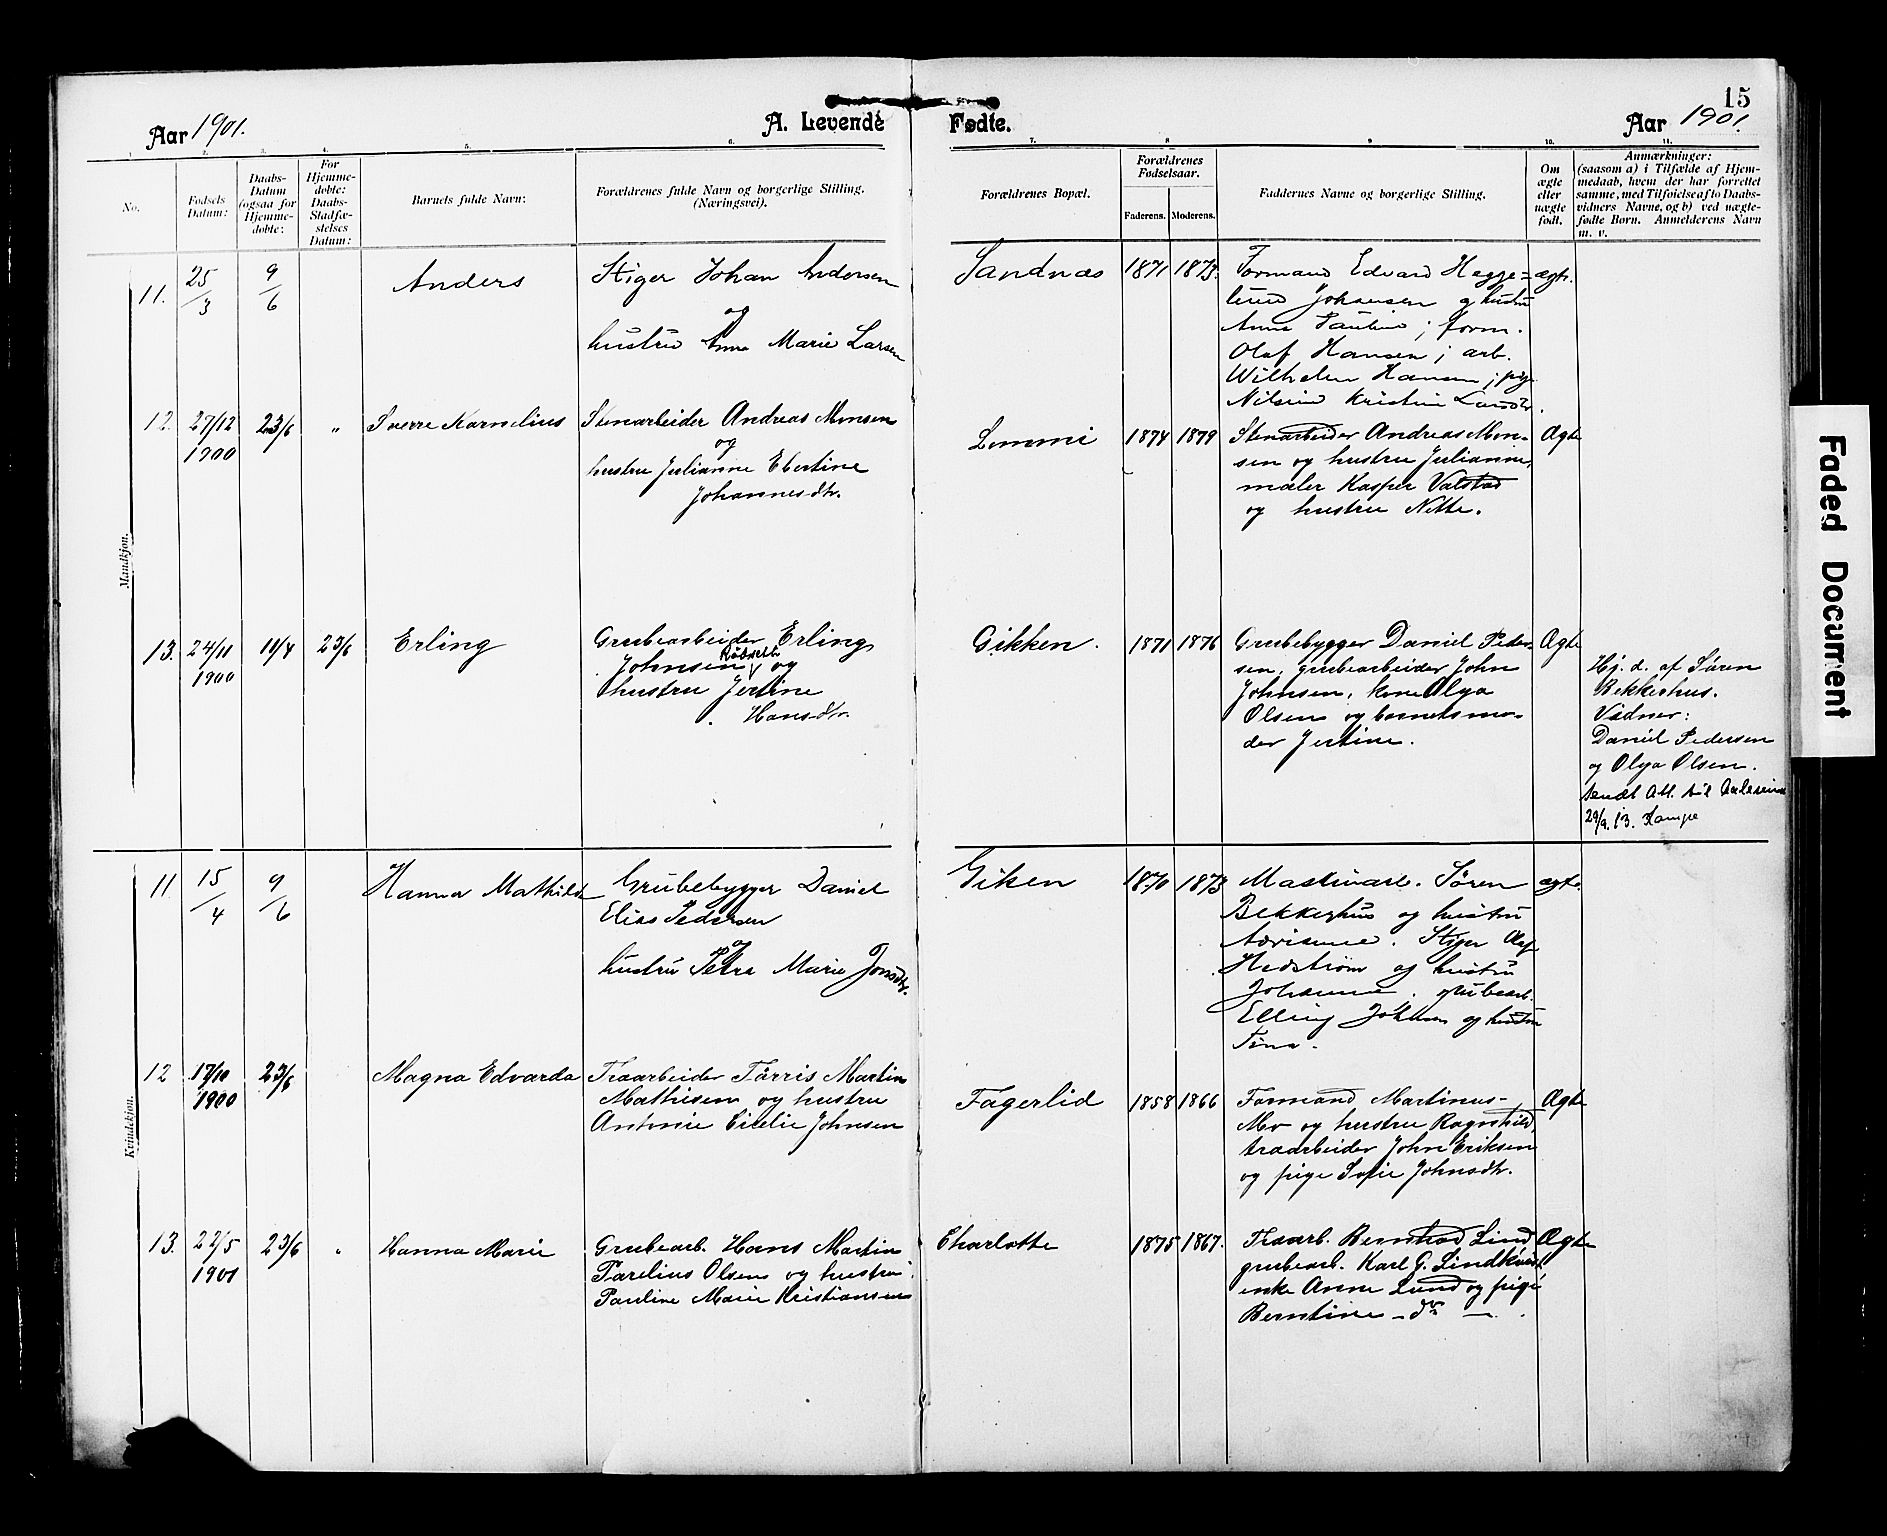 15
Aar 1901.
A. Levende Fødte.
Aar 1901.
1. 2. 3. 4. 5. 6. 7. 8 9 10. 11.
No.
Fødsels
Datum:
Daabs-
Datum
(ogsaa for
Hjemme-
døbte:
For
Hjemme-
døbte:
Daabs-
Stadfæ-
stelses
Datum:
Barnets fulde Navn:
Forældrenes fulde Navn og borgerlige Stilling.
(Næringsvei).
Forældrenes Bopæl.
Forældrenes
Fødselsaar.
Faderens. Moderens.
Faddernes Navne og borgerlige Stilling.
Om
ægte
eller
uægte
født.
Anmærkninger:
(saasom a) i Tilfælde af Hjem-
medaab, hvem der har forrettet
samme, med Tilføielse af to Daabs-
vidners Navne, og b) ved uægte-
fødte Børn. Anmelderens Navn
m. v.
Mandkjøn.
11. 25/3 9/6 Anders
Stiger Johan Andersen
og
hustru Anna Marie Larsen
Sandnæs 1871 1873.
Formand Edvard Hegge=
lund Johansen og hustru
Anna Pauline; form.
Olaf Hansen; arb.
Wilhelm Hansen; pige
Nilsine Kristine
ægte.
12. 27/12 23/6 " Sverre Kornelius
1900
Stenarbeider Andreas Monsen
og
hustru Julianne Ebertine
Johannesdtr.
Lommi 1874 1879
Stenarbeider Andreas Mon-
sen og hustru Julianne,
maler Kasper Valstad
og hustru Nette.
Ægte
13. 24/11 11/4 23/6 Erling
1900
Grubearbeider Erling
Johnsen og
hustru Jertine
Hansdtr.
Gikken. 1871 1876
Grubebygger Daniel Peder-
sen, grubearbeider John
Johnsen, kone Olga
Olsen og barnets mo-
der Jertine.
Ægte
Hj. d. af Søren
Bekkerhus.
Vidner:
Daniel Pedersen
og Olga Olsen.
Sendt Att. til
29/9. 13. Kampe
Kvindekjøn.
11 15/4 9/6 Hanna Mathilde
Grubebygger Daniel
Elias Pedersen
og
hustru Petra Marie Jonsdtr.
Giken 1870 1873
Maskinarb. Søren
Bekkerhus og hustru
Stiger Olaf
Hedstrøm og hustru
Johanna. grubearb.
Elling Johnsen og hustru
Tina.
ægte.
12 17/10 23/6 Magna Edvarda
1900
Træarbeider Tørris Martin
Mathisen og hustru
Antonie Cicilie Johnsen
Fagerlid 1858 1866
Formand Martinus
Mo og hustru Ragnhild,
træarbeider John Eriksen
og pige Sofie Johnsdtr.
Ægte
13. 22/5 23/6 " Hanna Marie
1901
Grubearb. Hans Martin
Parelius Olsen og hustru
Pauline Marie Kristiansen
Charlotte 1875 1867.
Træarb. Bernhard Lind
grubearb. Karl G. Lindkvist
enke Anna Lund og pige
Berntine - do -
Ægte
Faded Document